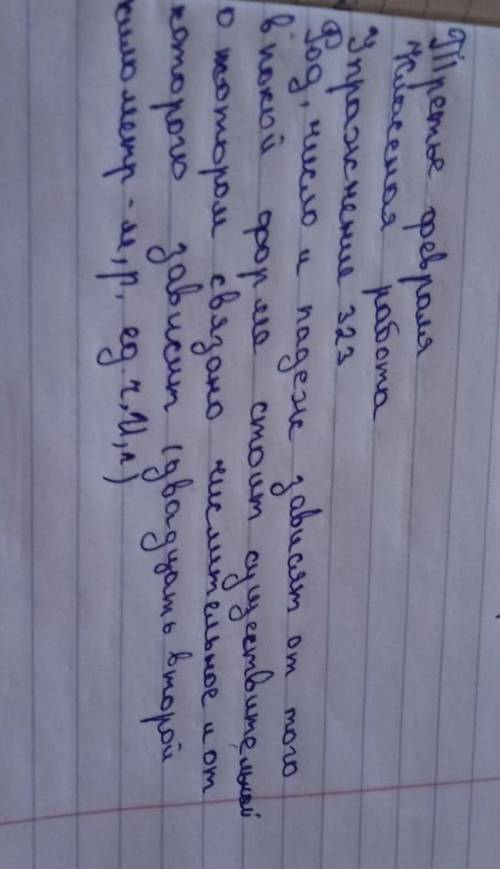 Третье февраля
Классная работа
Упражнение 323
Род, число и падеж зависят от того
в покой форма стоит существительной
о котором связано числительное и от
которого зависит (двадцать второй
километр - м, р, ед. ч, И, п)